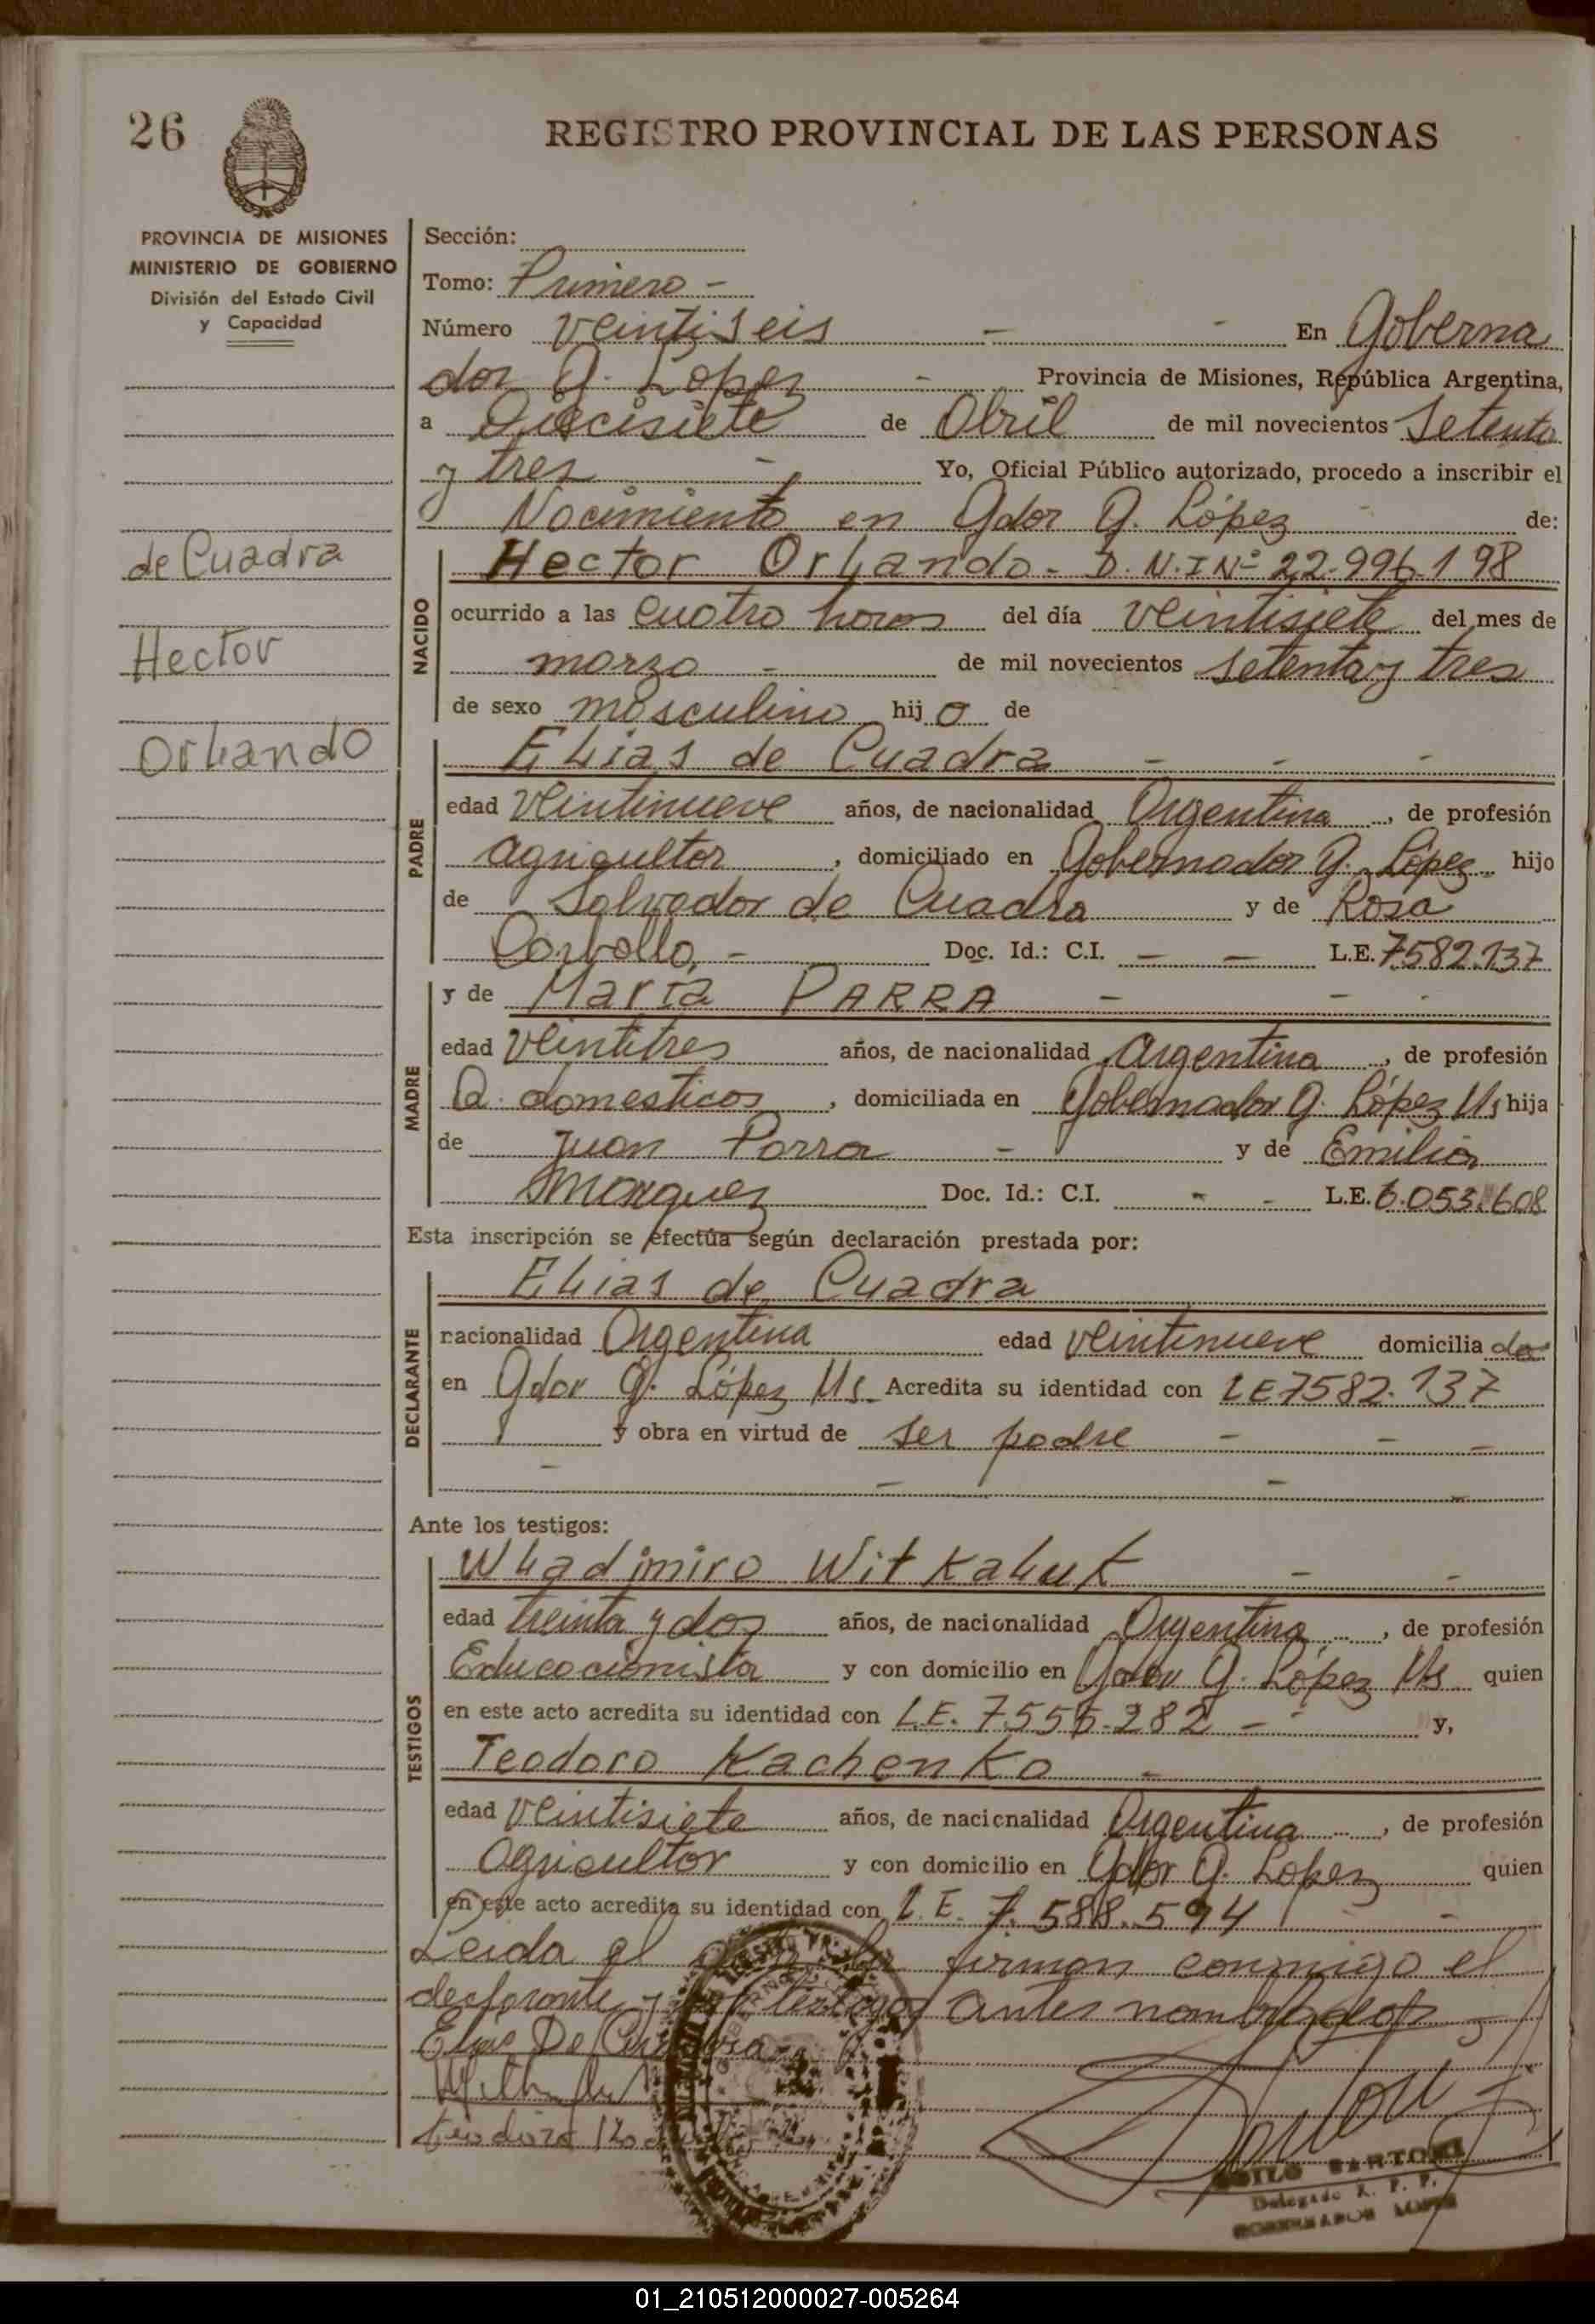 26
REGISTRO PROVINCIAL DE LAS PERSONAS
PROVINCIA DE MISIONES
MINISTERIO DE GOBIERNO
División del Estado Civil
y Capacidad
de Cuadra
Hector
Orlando
Sección:
Tomo: Primero -
Número veintiseis - - En Goberna
dor G. Lopez - Provincia de Misiones, República Argentina,
a Diecisiete de Abril de mil novecientos Setenta
y tres - Yo, Oficial Público autorizado, procedo a inscribir el
Nacimiento en Gdor G. López - de:
NACIDO
Hector Orlando - D.N.I Nº 22.996.198
ocurrido a las cuatro horas del día veintisiete del mes de
marzo - de mil novecientos setenta y tres
de sexo masculino hijo de
PADRE
Elias de Cuadra - - -
edad veintinueve años, de nacionalidad Argentina, de profesión
agricultor, domiciliado en Gobernador G. López hijo
de Salvador de Cuadra y de Rosa
Carballo - Doc. Id.: C.I. - - L.E. 7582.137
MADRE
y de Maria PARRA - - -
edad veintitres años, de nacionalidad Argentina, de profesión
Q. domesticos, domiciliada en Gobernador G. López Ms hija
de Juan Parra - y de Emilia
Marquez Doc. Id.: C.I. - - L.E. 6.053.608
Esta inscripción se efectúa según declaración prestada por:
DECLARANTE
Elias de Cuadra
nacionalidad Argentina edad veintinueve domiciliado
en Gdor G. López Ms. Acredita su identidad con LE 7582.137
y obra en virtud de ser padre - - -
- - - -
Ante los testigos:
TESTIGOS
Wladimiro Witkaluk - -
edad treinta y dos años, de nacionalidad Argentina, de profesión
Educacionista y con domicilio en Gdor G. López Ms quien
en este acto acredita su identidad con L.E. 7.555.282 - - y,
Teodoro Kachenko -
edad veintisiete años, de nacionalidad Argentina, de profesión
agricultor y con domicilio en Gdor G. Lopez quien
en este acto acredita su identidad con L.E. 7.588.594 -
Leida el firman conmigo el
declarante y testigos antes nombrados
Elias De Cuadra
teodoro
BARTONI
Delegado R. P. P.
GOBERNADOR LOPEZ
01_210512000027-005264